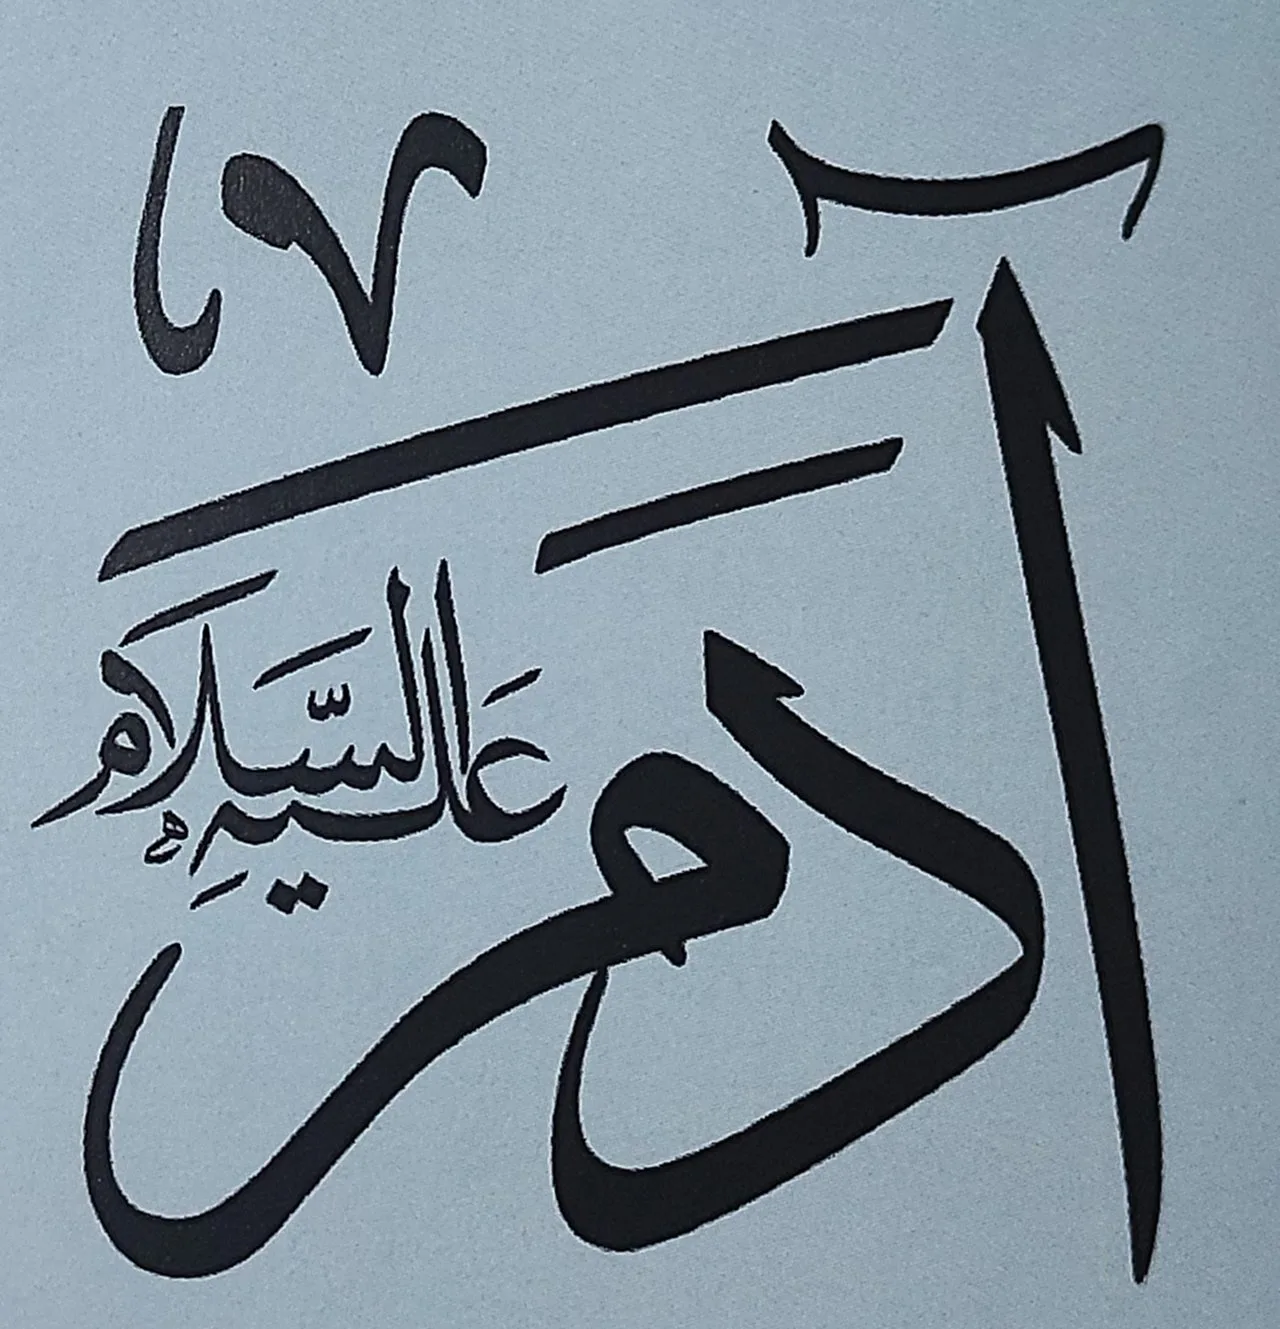 آدَمَ
عَلَيْهِ السَّلَام